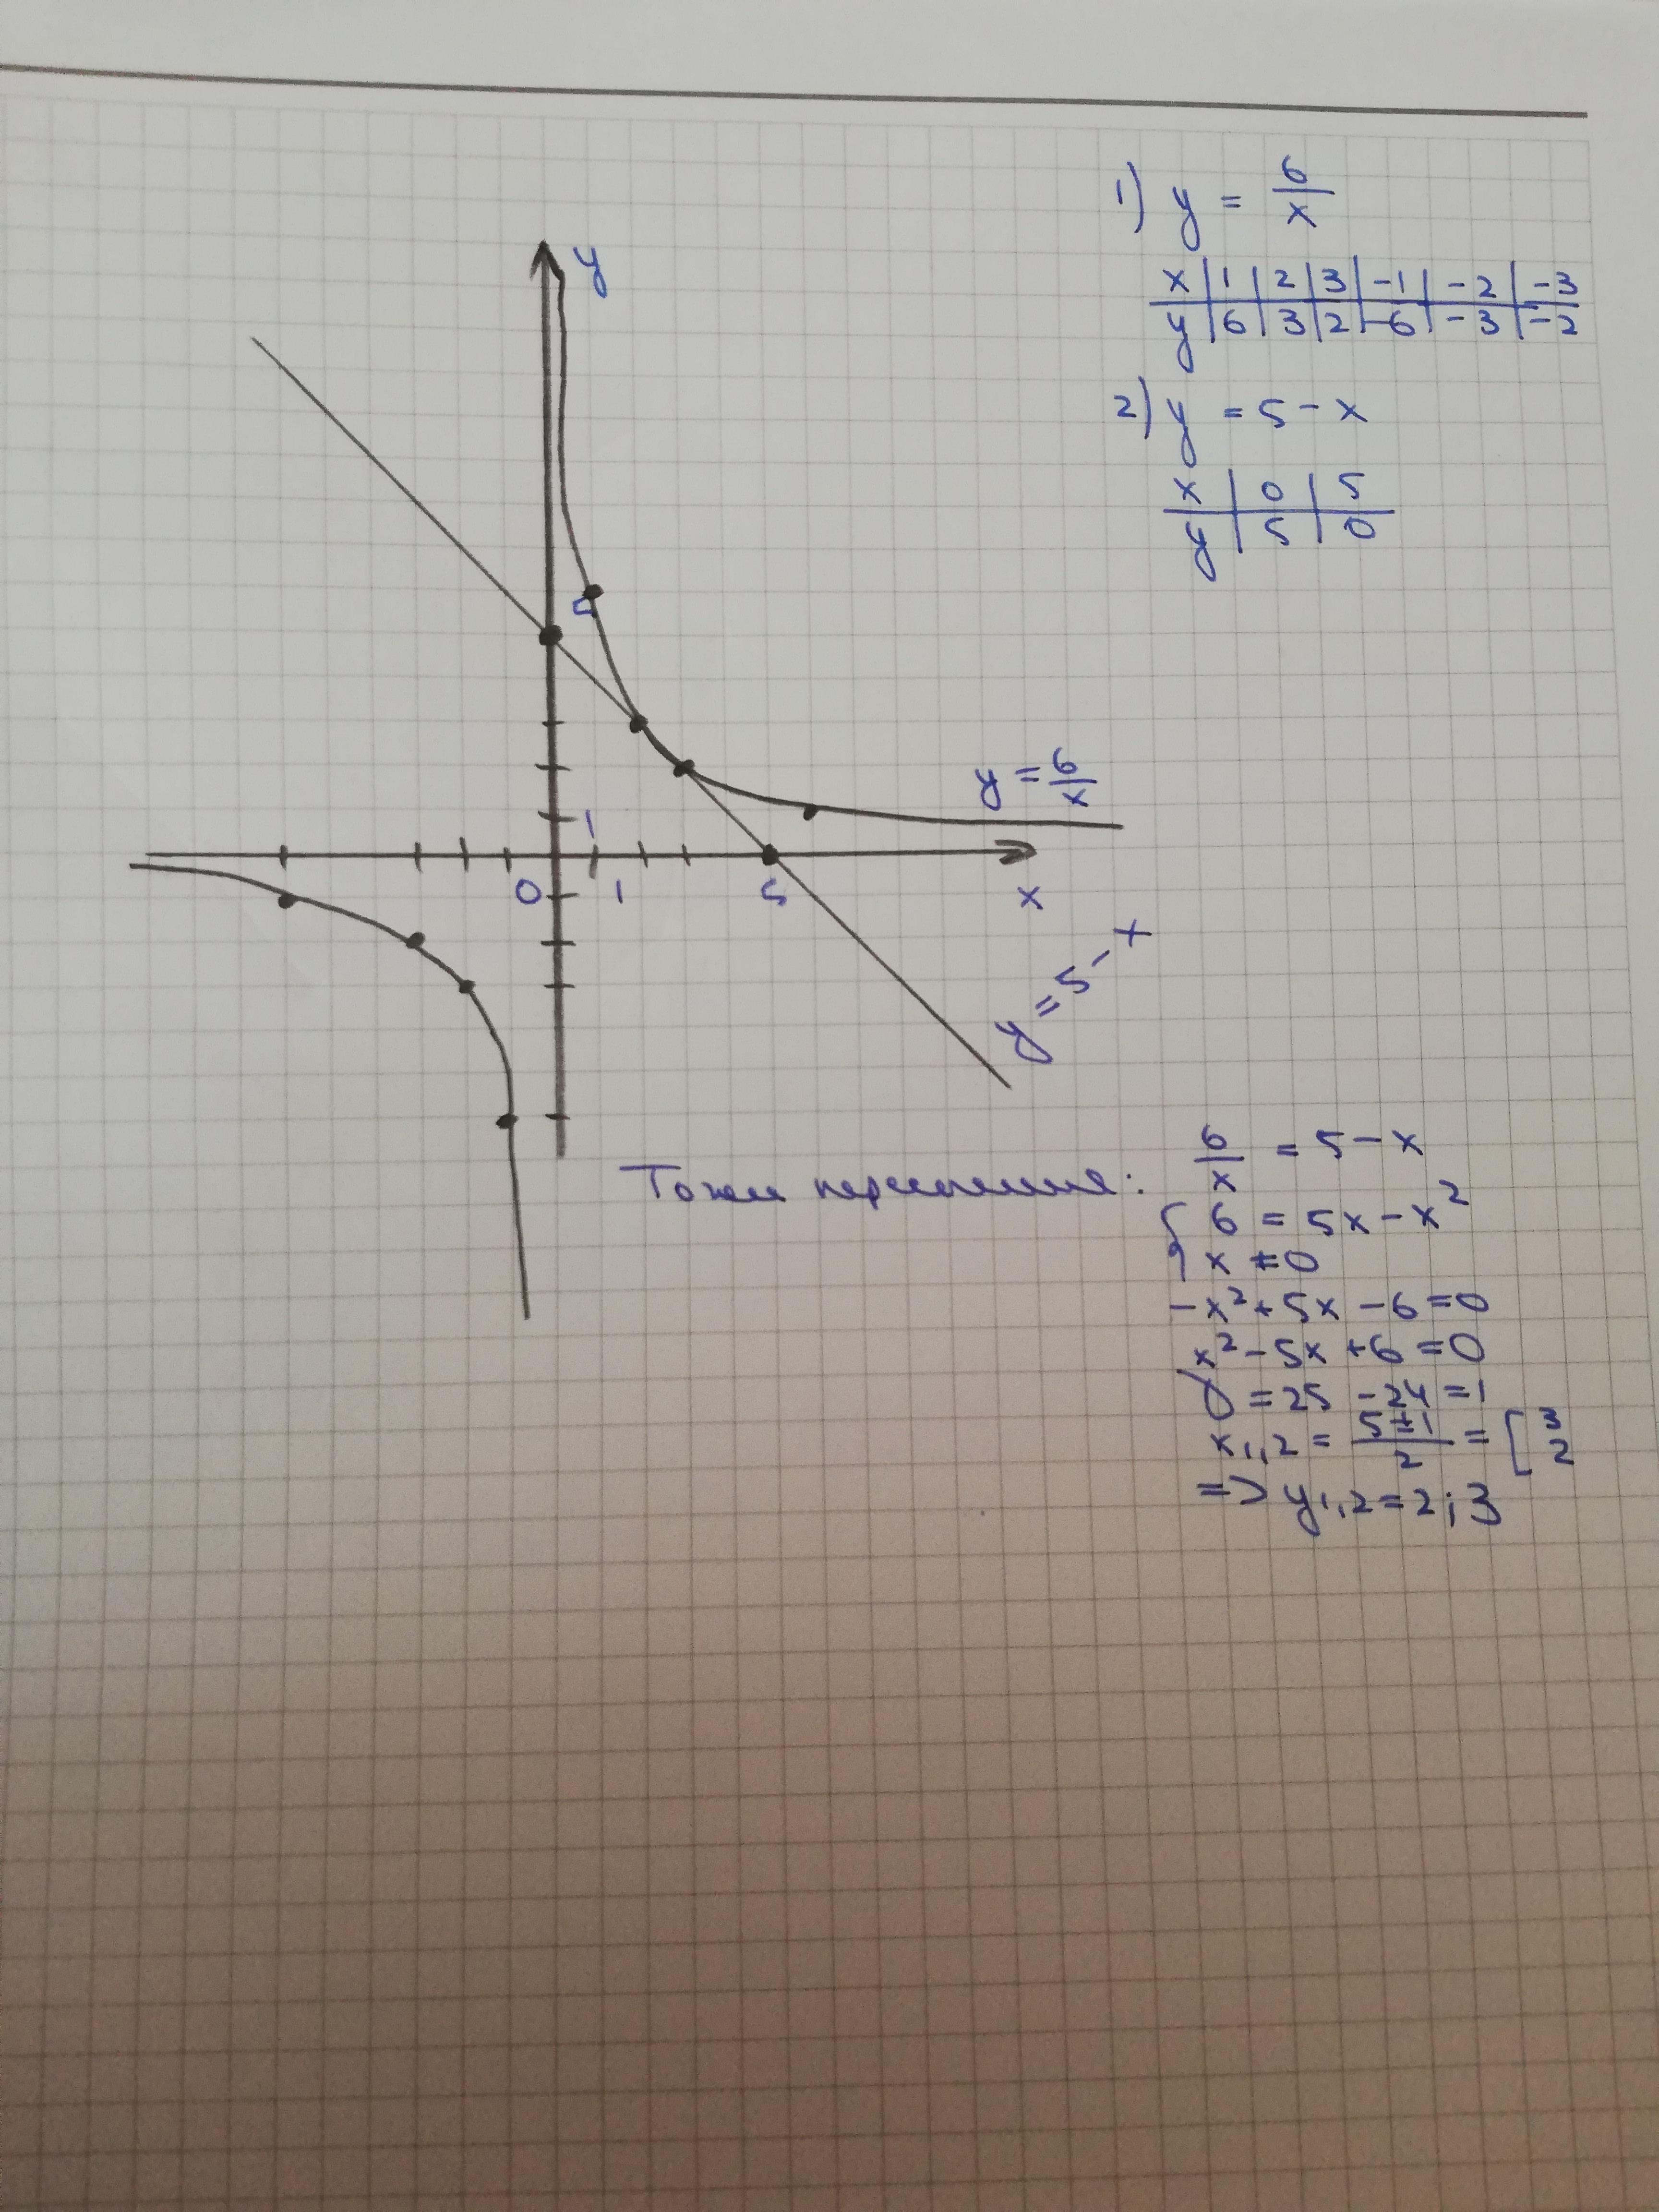 1) y = 6/x
x | 1 | 2 | 3 | -1 | -2 | -3
y | 6 | 3 | 2 | -6 | -3 | -2
2) y = 5 - x
x | 0 | 5
y | 5 | 0
y
5
y = 6/x
1
0 1 5 x
y = 5 - x
Точки пересечения: 6/x = 5 - x
{ 6 = 5x - x²
x ≠ 0
-x² + 5x - 6 = 0
x² - 5x + 6 = 0
D = 25 - 24 = 1
x1,2 = (5±1)/2 = [ 3 2
=> y1,2 = 2; 3